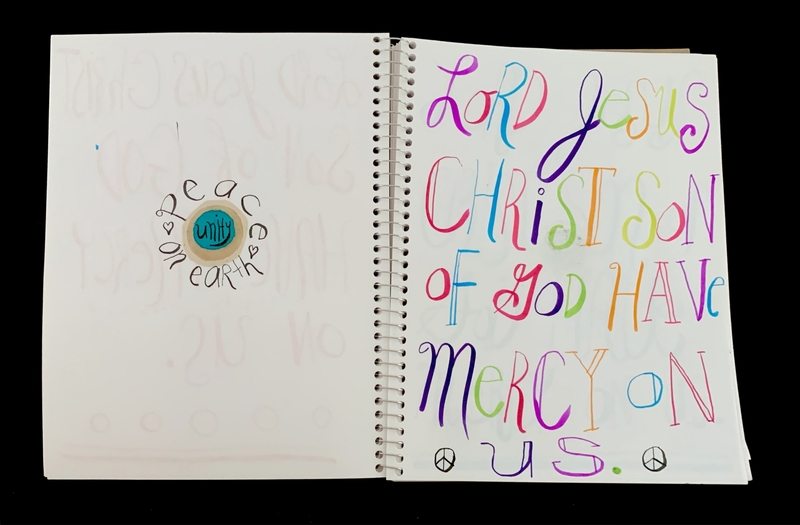 peace
unity
on earth
LORD Jesus
CHRiST SON
OF GOD HAVe
MeRCY ON
US.